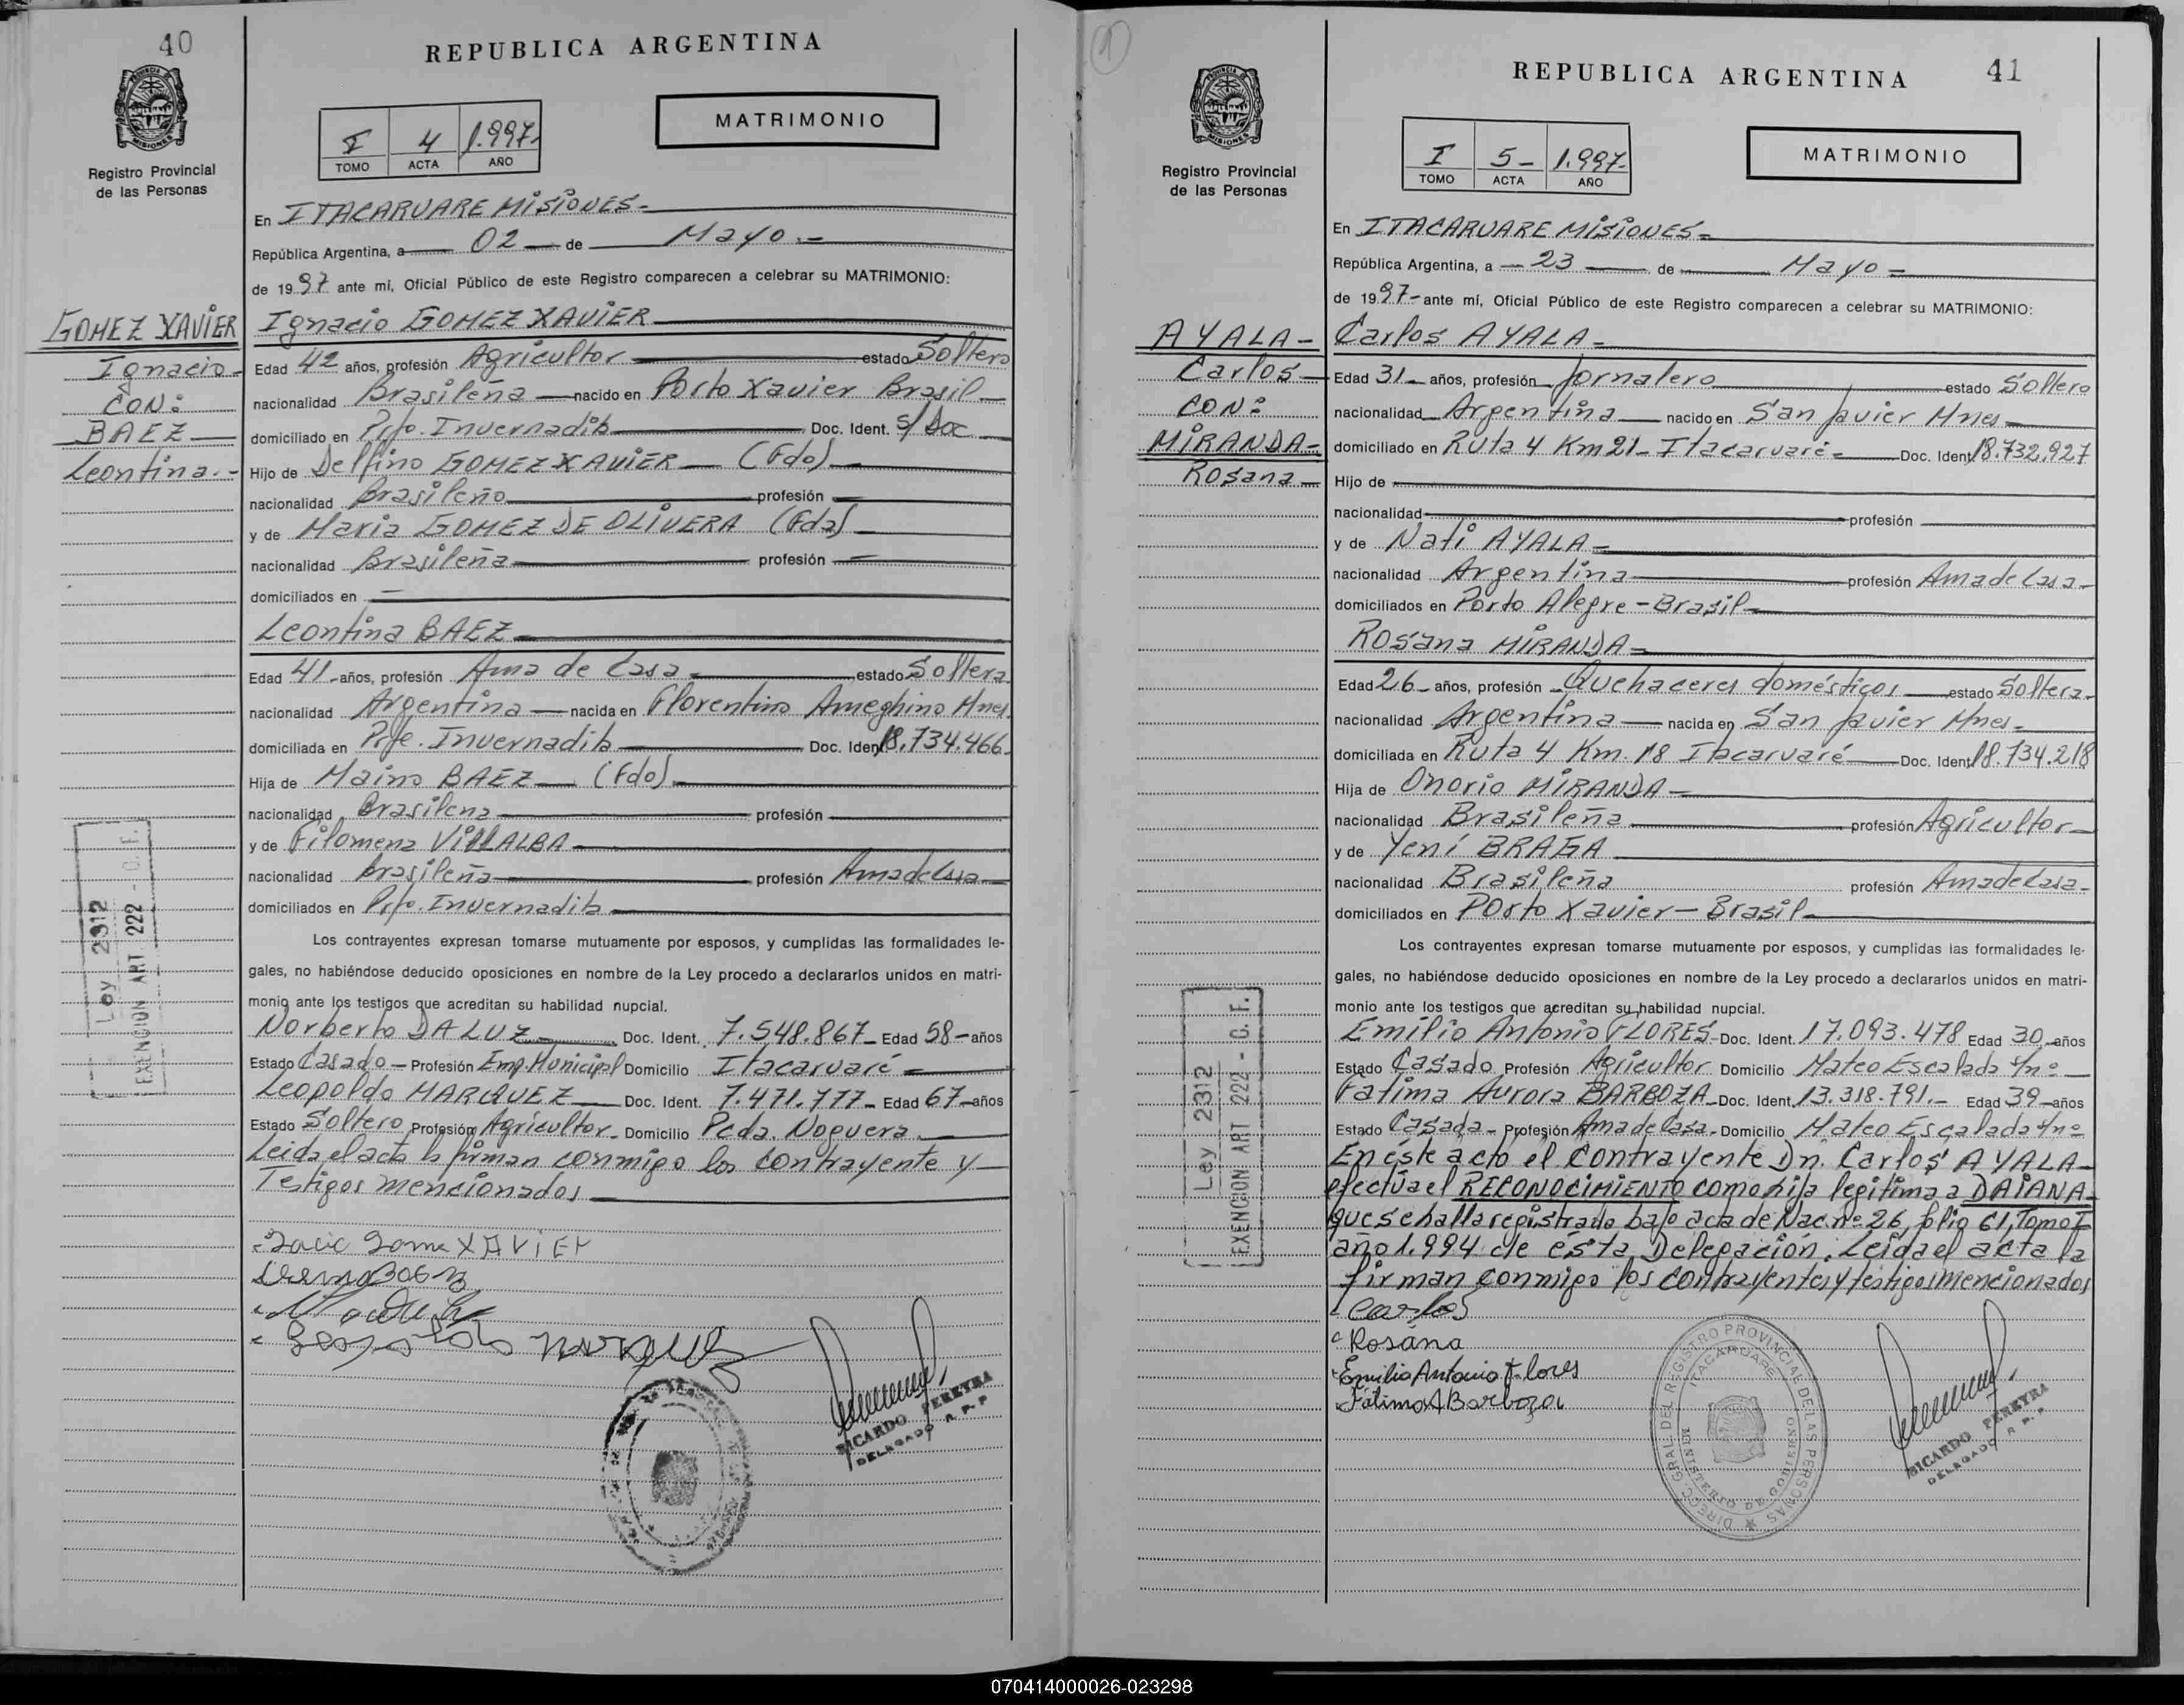 40
REPUBLICA ARGENTINA
MISIONES
Registro Provincial
de las Personas
I 4 1.997-
TOMO ACTA AÑO
MATRIMONIO
En ITACARUARE MISIONES-
República Argentina, a 02 de Mayo.-
de 1997 ante mí, Oficial Público de este Registro comparecen a celebrar su MATRIMONIO:
GOMEZ XAVIER
Ignacio-
CON:
BAEZ
Leontina.-
Ignacio GOMEZ XAVIER
Edad 42 años, profesión Agricultor estado Soltero
nacionalidad Brasileña nacido en Porto Xavier Brasil
domiciliado en Pje. Invernadita Doc. Ident. s/Doc
Hijo de Delfino GOMEZ XAVIER (Fdo)
nacionalidad Brasileño profesión
y de Maria GOMEZ DE OLIVERA (Fda)
nacionalidad Brasileña profesión
domiciliados en
Leontina BAEZ
Edad 41 años, profesión Ama de Casa estado Soltera
nacionalidad Argentina nacida en Florentino Ameghino Mnes
domiciliada en Pje. Invernadita Doc. Ident 18.734.466
Hija de Maino BAEZ (Fdo)
nacionalidad Brasilena profesión
y de Filomena VILLALBA
nacionalidad Brasileña profesión Ama de Casa
domiciliados en Pje. Invernadita
Los contrayentes expresan tomarse mutuamente por esposos, y cumplidas las formalidades le-
gales, no habiéndose deducido oposiciones en nombre de la Ley procedo a declararlos unidos en matri-
monio ante los testigos que acreditan su habilidad nupcial.
Norberto DA LUZ Doc. Ident. 7.548.867 Edad 58 años
Estado Casado Profesión Emp. Municipal Domicilio Itacaruaré
Leopoldo MARQUEZ Doc. Ident. 7.471.777 Edad 67 años
Estado Soltero Profesión Agricultor Domicilio Pcda. Noguera
Leida el acta la firman conmigo los contrayente y
Testigos mencionados
Ley 2312
EXENCION ART 222 - C. F.
XAViER
RICARDO PEREYRA
DELEGADO R. P. P
41
REPUBLICA ARGENTINA
MISIONES
Registro Provincial
de las Personas
I 5- 1.997-
TOMO ACTA AÑO
MATRIMONIO
En ITACARUARE MISIONES-
República Argentina, a 23 de Mayo
de 1997- ante mí, Oficial Público de este Registro comparecen a celebrar su MATRIMONIO:
AYALA-
Carlos
CON:
MIRANDA-
Rosana
Carlos AYALA
Edad 31 años, profesión Jornalero estado Soltero
nacionalidad Argentina nacido en San Javier Mnes
domiciliado en Ruta 4 Km 21- Itacaruaré Doc. Ident 18.732.927
Hijo de
nacionalidad profesión
y de Nati AYALA
nacionalidad Argentina profesión Ama de Casa
domiciliados en Porto Alegre - Brasil
Rosana MIRANDA
Edad 26 años, profesión Quehaceres domésticos estado Soltera
nacionalidad Argentina nacida en San Javier Mnes
domiciliada en Ruta 4 Km. 18 Itacaruaré Doc. Ident 18.734.218
Hija de Onorio MIRANDA
nacionalidad Brasileña profesión Agricultor
y de Yeni BRAGA
nacionalidad Brasileña profesión Ama de Casa
domiciliados en Porto Xavier - Brasil
Los contrayentes expresan tomarse mutuamente por esposos, y cumplidas las formalidades le-
gales, no habiéndose deducido oposiciones en nombre de la Ley procedo a declararlos unidos en matri-
monio ante los testigos que acreditan su habilidad nupcial.
Emilio Antonio FLORES Doc. Ident. 17.093.478 Edad 30 años
Estado Casado Profesión Agricultor Domicilio Mateo Escalada s/nº
Fatima Aurora BARBOZA Doc. Ident. 13.318.791.- Edad 39 años
Estado Casada Profesión Ama de Casa Domicilio Mateo Escalada s/nº
En éste acto el contrayente Dn. Carlos AYALA
efectúa el RECONOCIMIENTO como hija legitima a DAIANA-
que se halla registrada bajo acta de Nac. nº 26, folio 61, Tomo I
año 1.994 de ésta Delegación. Leida el acta la
firman conmigo los contrayentes y testigos mencionados
Carlos
Rosana
Emilio Antonio Flores
Fatima A Barboza
Ley 2312
EXENCION ART 222 - C. F.
DIRECC. GRAL. DEL REGISTRO PROVINCIAL DE LAS PERSONAS
ITACARUARE
MINISTERIO DE GOBIERNO
RICARDO PEREYRA
DELEGADO R. P. P
070414000026-023298